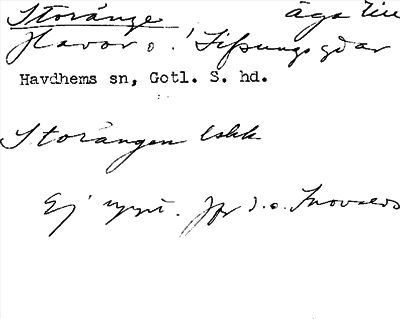 Storänge äga till
Havor o. Sissungs gdar
Havdhems sn, Gotl. S. hd.
Storängen lskk
Ej uppt. Jfr d.o.